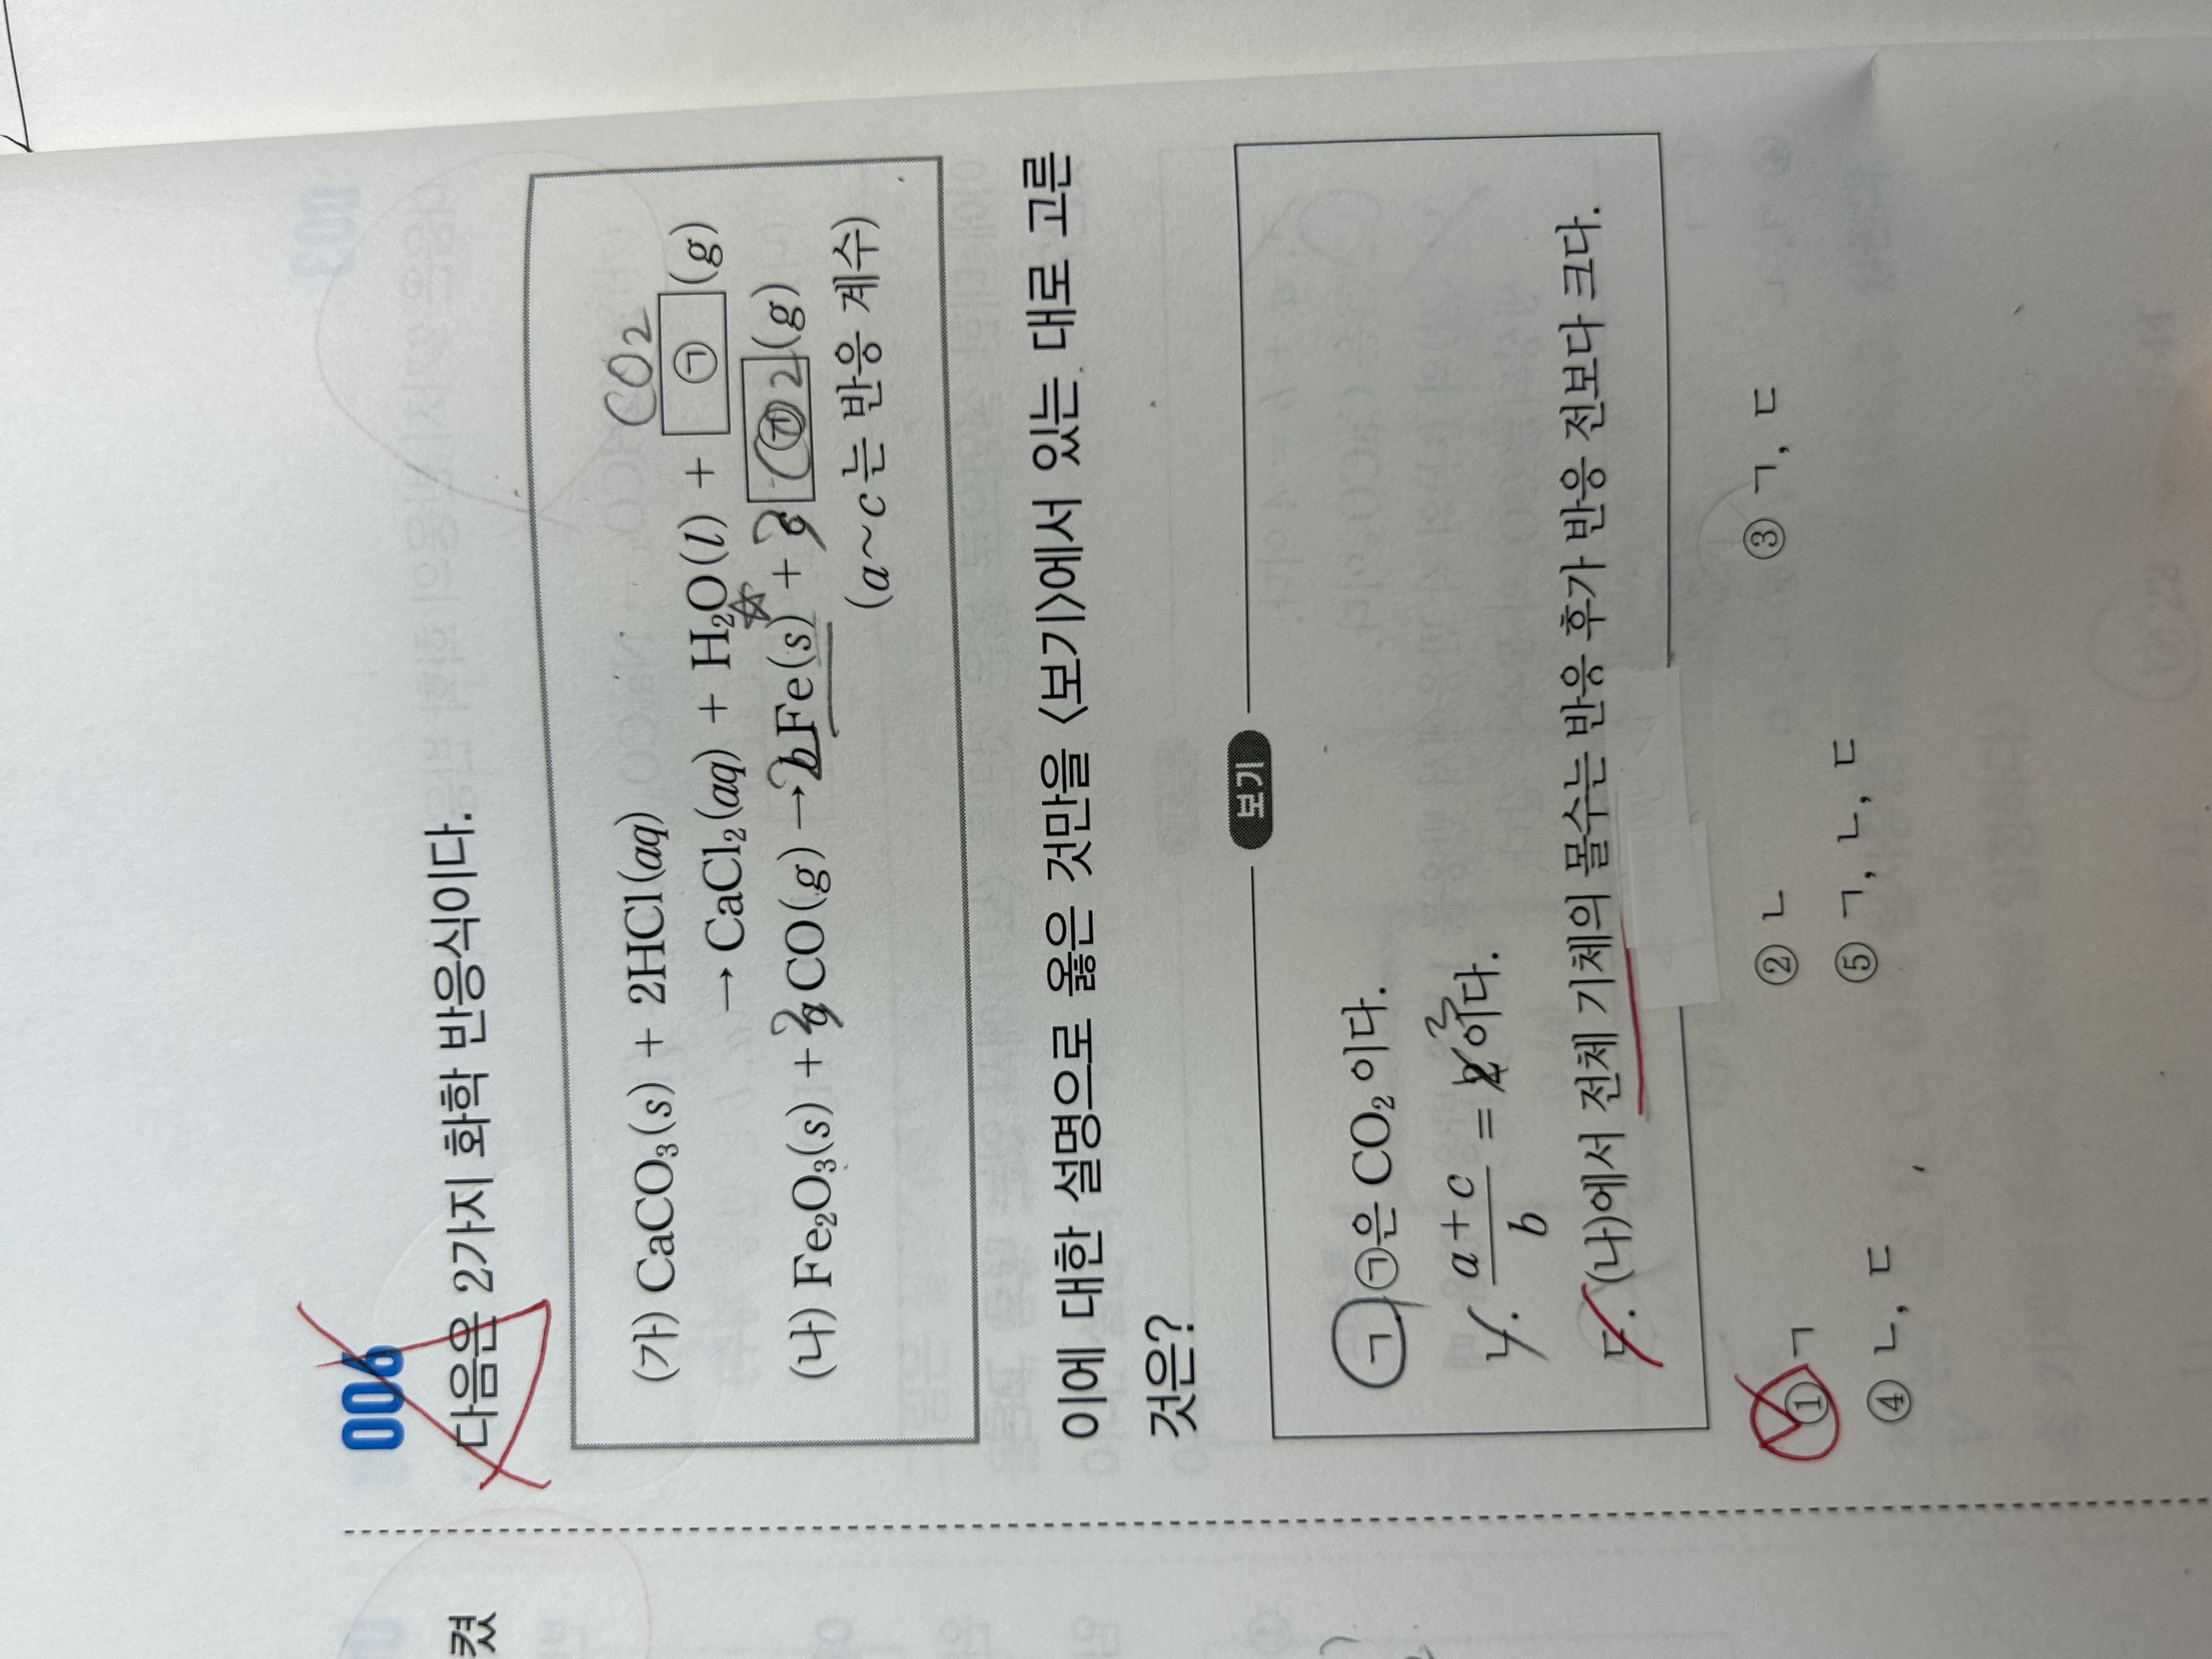 006
다음은 2가지 화학 반응식이다.
CO2
(가) CaCO₃(s) + 2HCl(aq)
→ CaCl₂(aq) + H₂O(l) + ㉠ (g)
(나) Fe₂O₃(s) + aCO(g) → bFe(s) + c ㉠ (g)
(a~c는 반응 계수)
이에 대한 설명으로 옳은 것만을 <보기>에서 있는 대로 고른
것은?
보기
ㄱ. ㉠은 CO₂이다.
ㄴ. (a+c)/b = 이다.
3
ㄷ. (나)에서 전체 기체의 몰수는 반응 후가 반응 전보다 크다.
① ㄱ ② ㄴ ③ ㄱ, ㄷ
④ ㄴ, ㄷ ⑤ ㄱ, ㄴ, ㄷ
켰